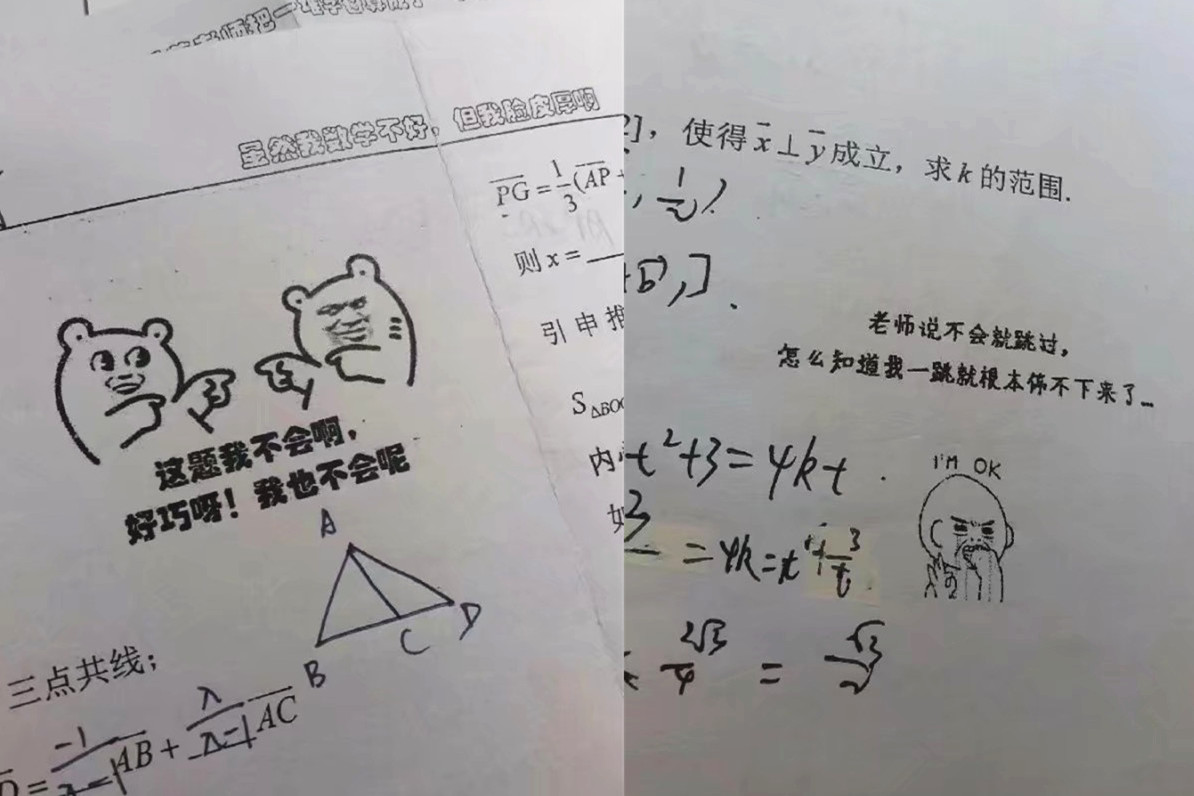 虽然我数学不好，但我脸皮厚啊
PG = 1/3(AP +
则 x = __
引申推
S△BOC
内
如
这题我不会啊，
好巧呀！我也不会呢
A
B
C
D
三点共线；
D = -1/(λ-1) AB + λ/(λ-1) AC
]，使得 x̄⊥ȳ 成立，求 k 的范围.
, 1/2)
b,].
老师说不会就跳过，
怎么知道我一跳就根本停不下来了...
t²+3=4kt.
3 = 4k = t + 3/t
I'M OK
2√3/4 = √3/2